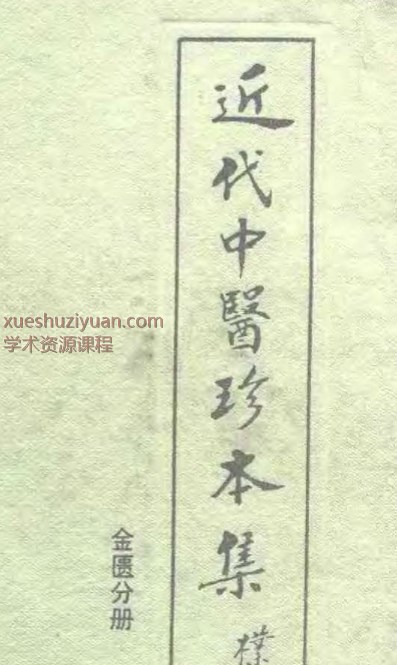 近代中醫珍本集
金匱分册
xueshuziyuan.com
学术资源课程